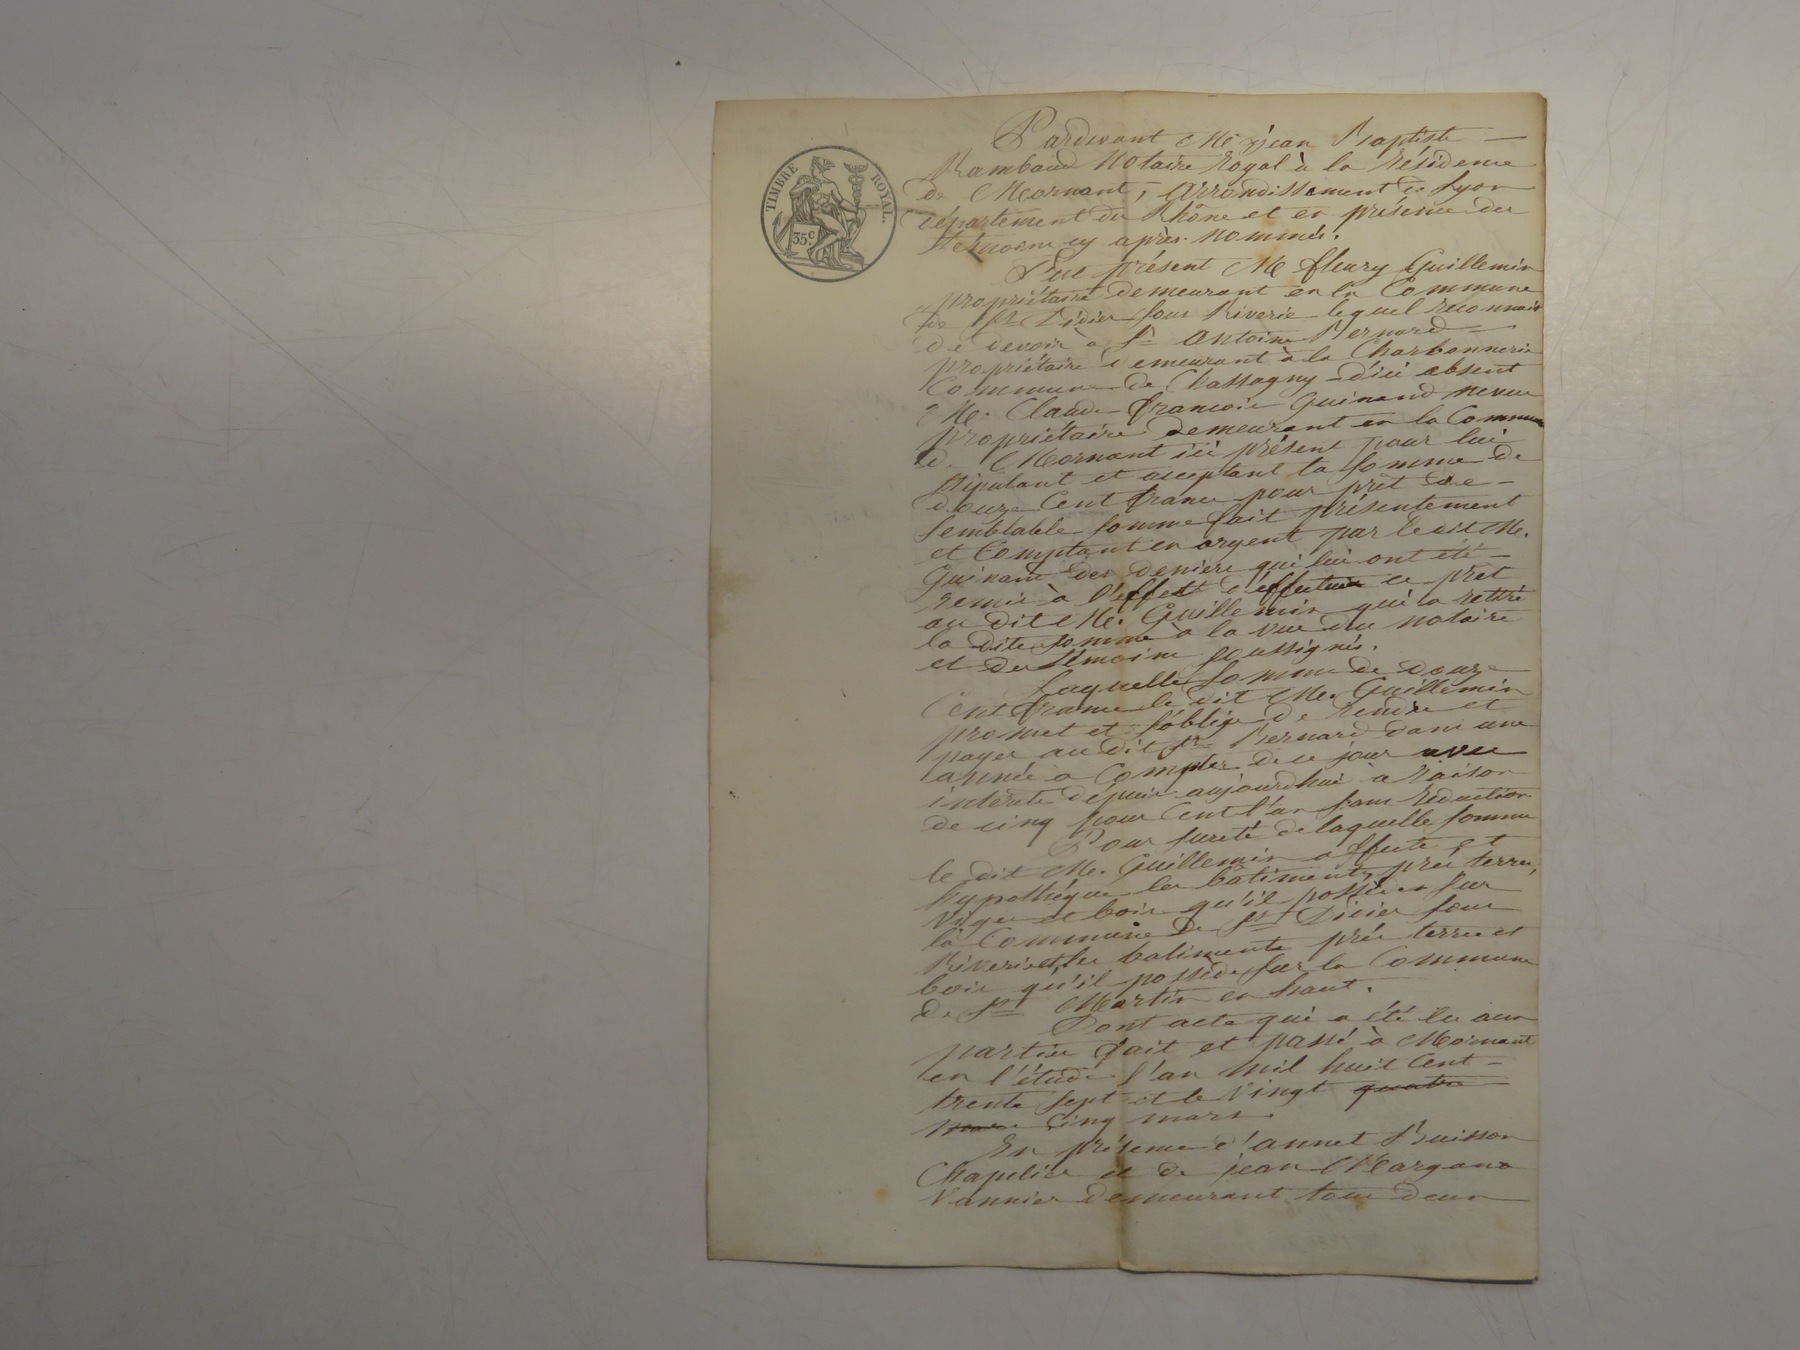 TIMBRE ROYAL.
35c
Pardevant Me jean Baptiste
Rambaud Notaire Royal à la Résidence
de Mornant, Arrondissement de Lyon
département du Rhône et en présence des
témoins cy après nommés.
Fut présent Mr fleury Guillemin
propriétaire demeurant en la Commune
de St Didier sous Riverie lequel reconnait
de devoir à Sr Antoine Bernard
propriétaire demeurant à la Charbonnerie
Commune de Chassagny d'ici absent
Mr. Claude françois Guinand neveu
propriétaire demeurant en la Commune
de Mornant ici présent pour lui
stipulant et aceptant la somme de
douze Cent francs pour prêt de
semblable somme fait présentement
et Comptant en argent par le dit Mr.
Guinand des deniers qui lui ont été
remis à l'effet d'effectuer ce prêt
au dit Mr. Guillemin qui a retiré
la dite somme à la vue du notaire
et des témoins soussignés.
Laquelle somme de douze
Cent francs le dit Mr. Guillemin
promet et s'oblige de rendre et
payer au dit Sr Bernard dans une
année a Compter de ce jour avec
intérêts depuis aujourdhui à raison
de cinq pour Cent l'an sans réduction
Pour sureté de laquelle somme
le dit Mr. Guillemin affecte et
hypothéque les bâtiments, prés terres,
vignes et bois qu'il possède sur
la Commune de St Didier sous
Riverie et les batiments prés terres et
bois qu'il possède sur la Commune
de St Martin en haut.
Dont acte qui a été lu aux
parties fait et passé à Mornant
en l'étude l'an mil huit Cent
trente sept et le vingt quatre
mars Cinq mars.
En présence d'annet Buisson
Chapelier et de jean Margand
Vannier demeurant tous deux